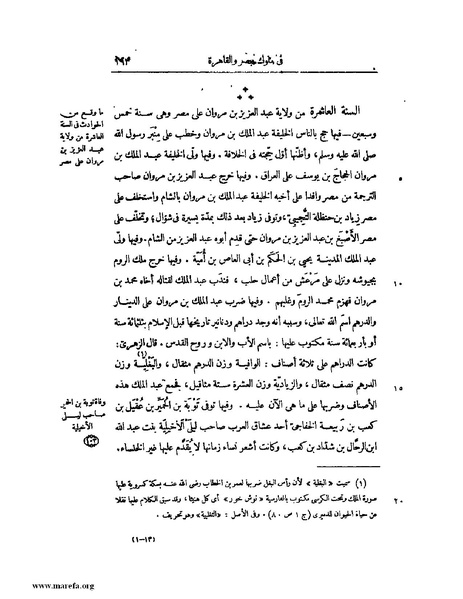 في ملوك مصر والقاهرة ١٩٣
السنة العاشرة من ولاية عبد العزيز بن مروان على مصر وهى سنة خمس
وسبعين — فيها حج بالناس الخليفة عبد الملك بن مروان وخطب على منبر رسول الله
صلى الله عليه وسلم، وأظنّها أوّل حِجّته في الخلافة. وفيها ولّى الخليفة عبد الملك بن
مروان الحجاج بن يوسف على العراق. وفيها خرج عبد العزيز بن مروان صاحب
الترجمة من مصر وافدا على أخيه الخليفة عبد الملك بن مروان بالشام واستخلف على
مصر زياد بن حنظلة التُّجِيبىّ، وتوفى زياد بعد ذلك بمدّة يسيرة في شوّال، وتخلّف على
مصر الأَصْبَغ بن عبد العزيز بن مروان حتى قدم أبوه عبد العزيز من الشام. وفيها ولّى
عبد الملك المدينة يحيى بن الحَكَم بن أبى العاص بن أُمَيّة. وفيها خرج ملك الروم
بجيوشه ونزل على مَرْعَش من أعمال حلب، فندَب عبد الملك لقتاله أخاه محمد بن
مروان فهزم محمد الرومَ وغلبهم. وفيها ضرب عبد الملك بن مروان على الدينار
والدرهم اسمَ الله تعالى، وسببه أنه وجد دراهم ودنانير تاريخها قبل الإسلام بثلثمائة سنة
أو بأربعمائة سنة مكتوب عليها: باسم الأب والابن و روح القدس. قال الزهرىّ:
كانت الدراهم على ثلاثة أصناف: الوافية وزن الدرهم مثقال، والبَغْلِيَّة (١) وزن
الدرهم نصف مثقال، والزيادِيّة وزن العشرة ستّة مثاقيل، فجمع عبد الملك هذه
الأصناف وضربها على ما هى الآن عليه. وفيها توفى تَوْبَة بن الحُمَيِّر بن عُقَيل بن
كعب بن ربيعة الخفاجىّ أحد عشاق العرب صاحب ليلى الأَخْيَلِيّة بنت عبد الله
ابن الرحّال بن شدّاد بن كعب، وكانت أشعر نساء زمانها لا يُقدَّم عليها غيرُ الخنساء.
ما وقع من
الحوادث في السنة
العاشرة من ولاية
عبد العزيز بن
مروان على مصر
٥
١٠
١٥
وفاة توبة بن الحمير
صاحب ليلى
الأخيلية
(١) سميت «البغلية» لأن رأس البغل ضربها لعمر بن الخطاب رضى الله عنه بسكة كسروية عليها
صورة الملك وتحت الكرسى مكتوب بالفارسية «نوش خور» أى كل هنيئا، وقد سيق الكلام عليها نقلا
عن حياة الحيوان للدميرى (ج ١ ص ٨٠). وفى الأصل: «الثعلبية» وهو تحريف.
٢٠
(١-١٣)
www.marefa.org